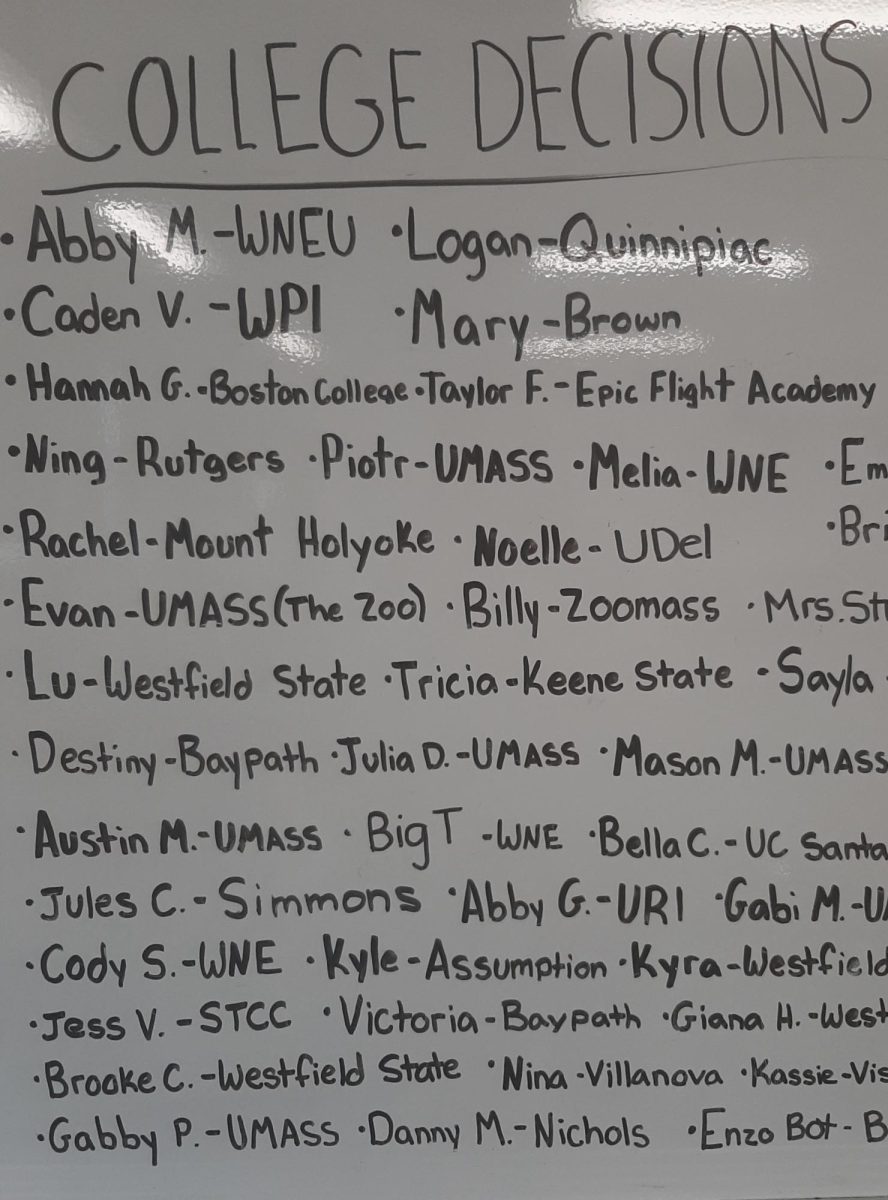 COLLEGE DECISIONS
• Abby M.-WNEU • Logan-Quinnipiac
• Caden V. -WPI • Mary-Brown
• Hannah G.-Boston College • Taylor F.- Epic Flight Academy
• Ning-Rutgers • Piotr-UMASS • Melia-WNE • Em
• Rachel-Mount Holyoke • Noelle- UDel • Bri
• Evan-UMASS (The Zoo) • Billy-Zoomass • Mrs.
• Lu-Westfield State • Tricia-Keene State • Sayla
• Destiny-Baypath • Julia D.-UMASS • Mason M.-UMASS
• Austin M.-UMASS • Big T -WNE • Bella C.- UC Santa
• Jules C.- Simmons • Abby G.-URI • Gabi M.-
• Cody S.-WNE • Kyle-Assumption • Kyra-Westfield
• Jess V. -STCC • Victoria-Baypath • Giana H.-West
• Brooke C.-Westfield State • Nina-Villanova • Kassie-Vis
• Gabby P.-UMASS • Danny M.-Nichols • Enzo Bot- B